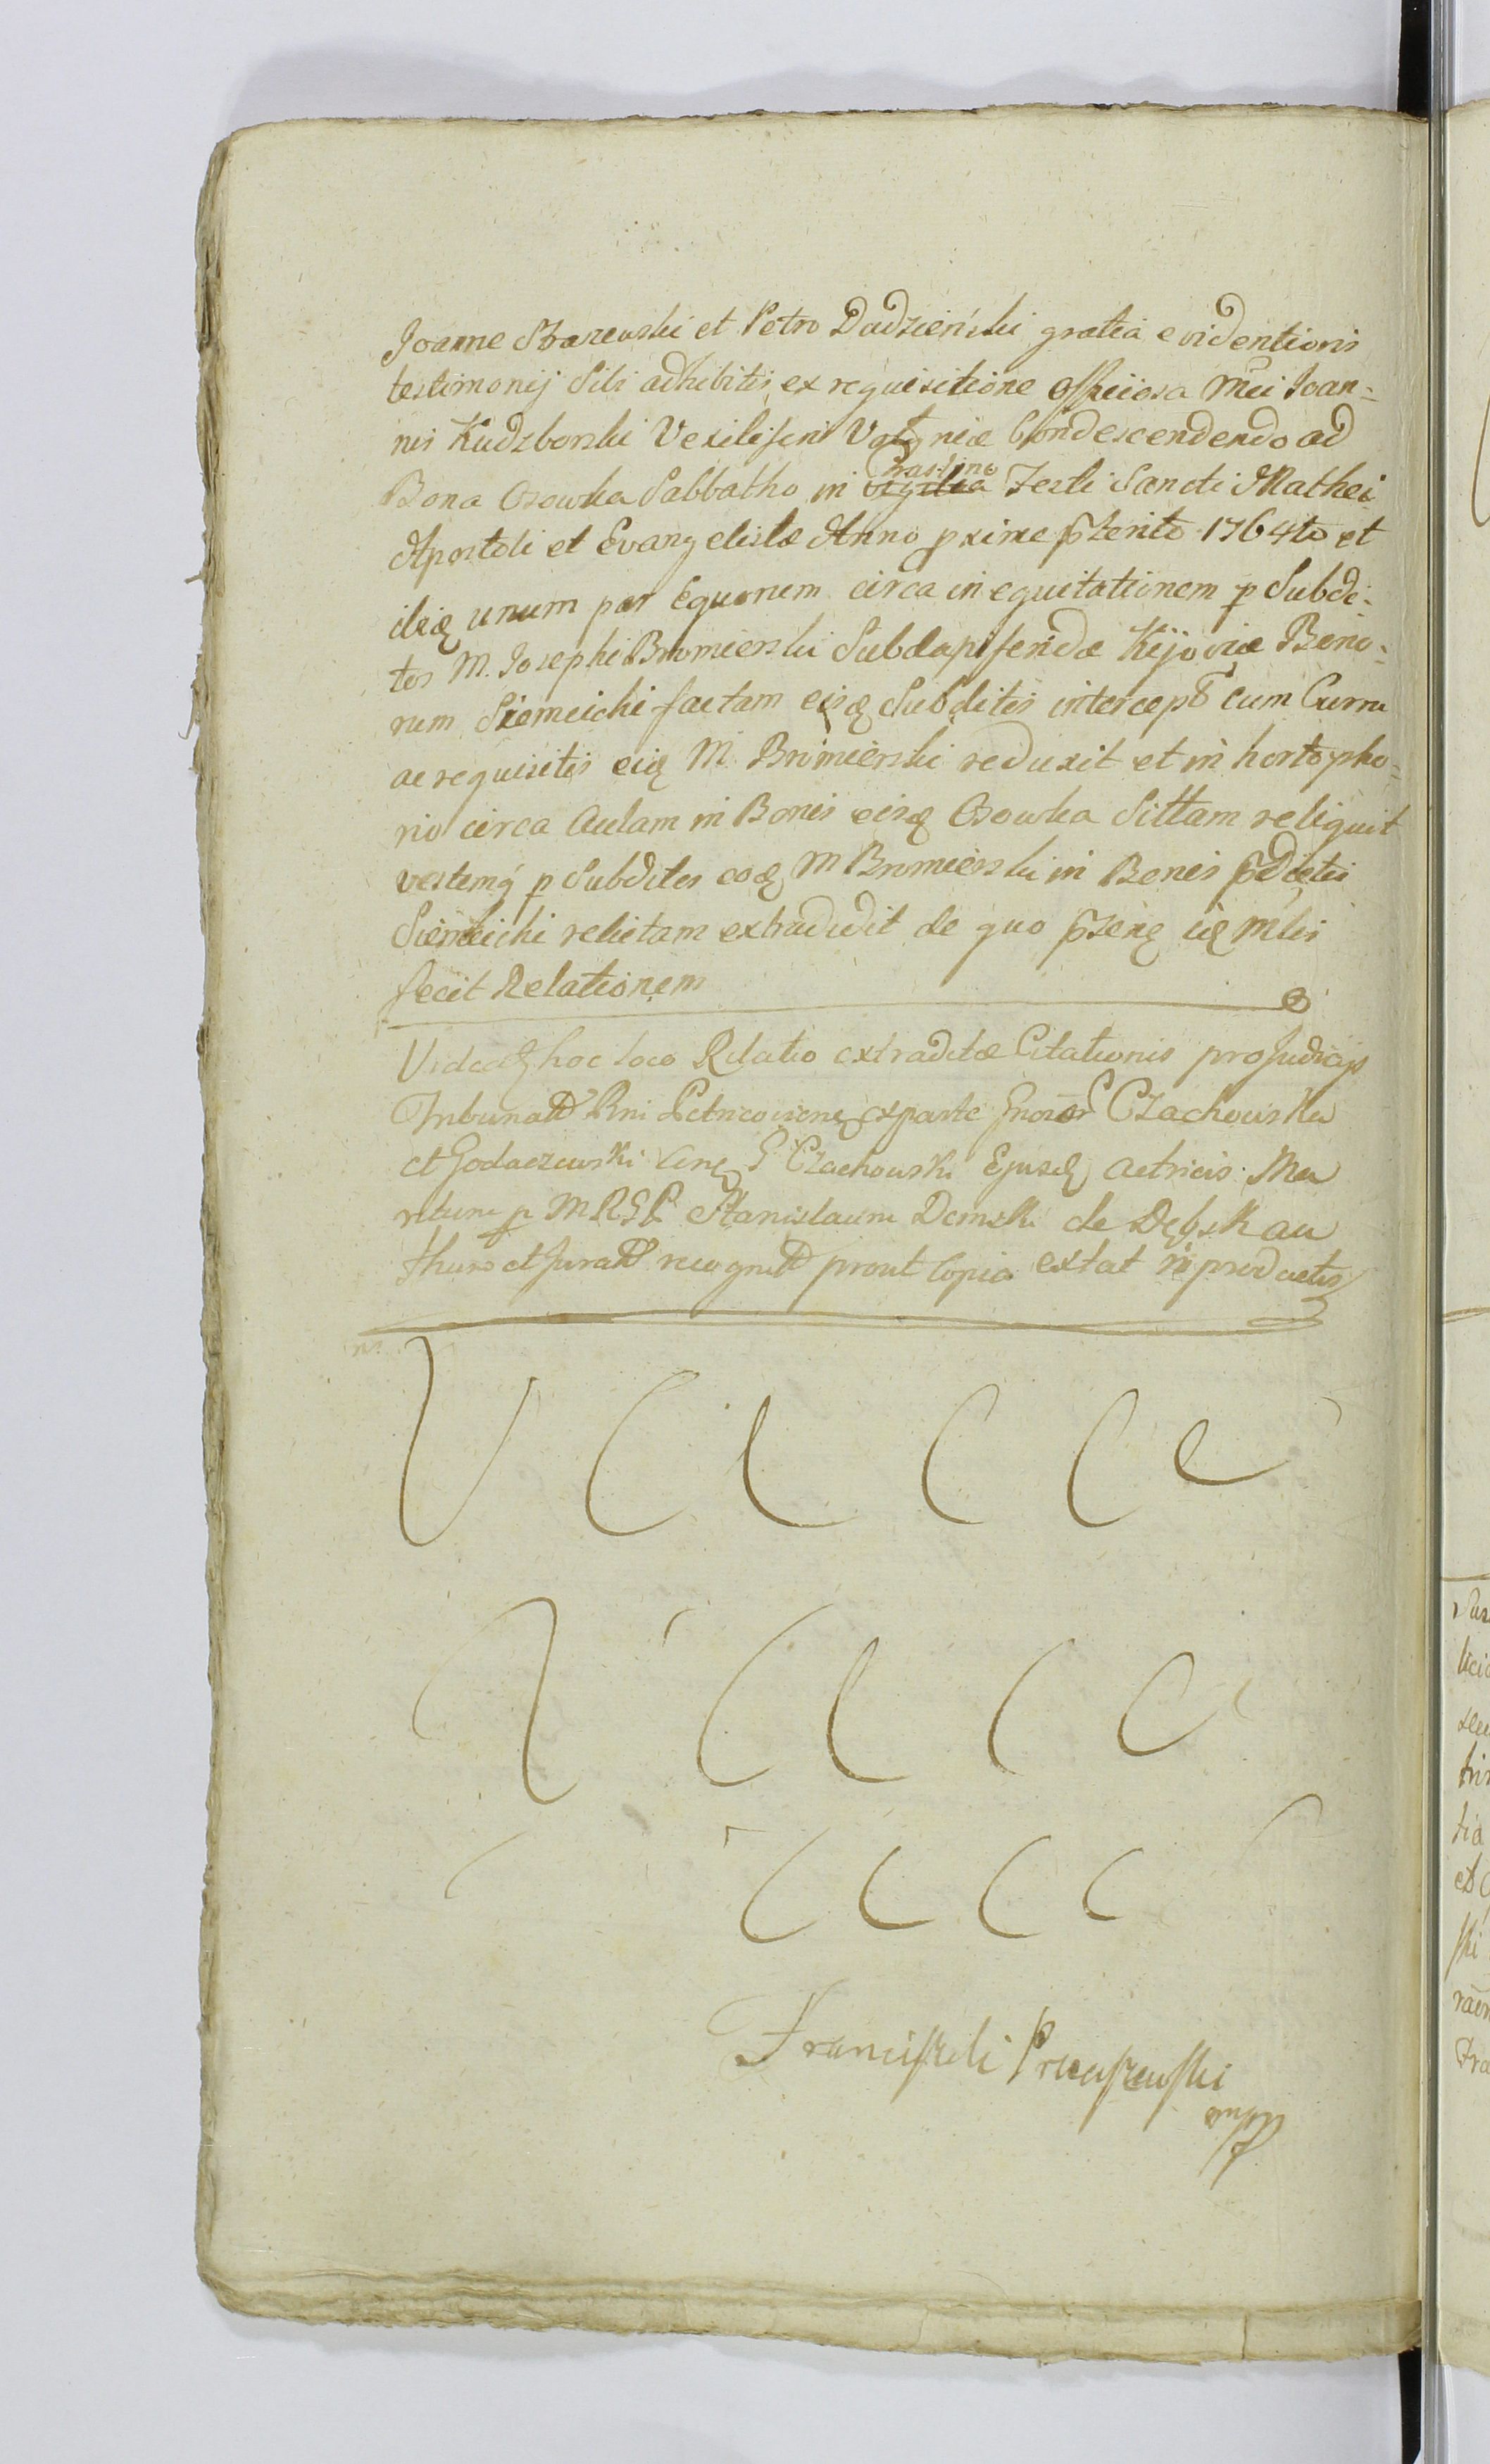 Joanne Starzewski et Petro Dadzieński gratia evidentioris
testimonij Sibi adhibitis, ex requisitione officiosa Mci Joan=
nis Kudzborski Vexiliferi Volyniæ Condescendendo ad
Bona Osowka Sabbatho in vigilia Crastino Festi Sancti Mathei
Apostoli et Evangelistæ Anno pxime pterito 1764to et
ibiq unum par Equorum circa inequitationem p Subdi=
tos M. Josephi Bromierski Subdapiferidæ Kijoviæ Bono=
rum Siemeichi factam eisq Subditis intercept cum Curru
ac requisitis eiq M Bromierski reduxit et in horto pho=
rio circa Aulam in Bonis eisq Osowka Sittam reliquit
vestemq p Subditos eoq M Bromierski in Bonis pdictis
Siemeichi relictam extradidit de quo pzens iq mlis
fecit Relationem
Videatq hoc loco Relatio extraditæ Citationis pro Judicijs
Tribunal Rni Petricovien exparte Gnor Czachowska
et Godaczewski Czachowski Ejusd actricis Ma
ritum p M R G P Stanislaum Demski de Dębsk au
thoro et Jurat recognit prout Copia extat in productis
Franciszek Pruszewski
mp